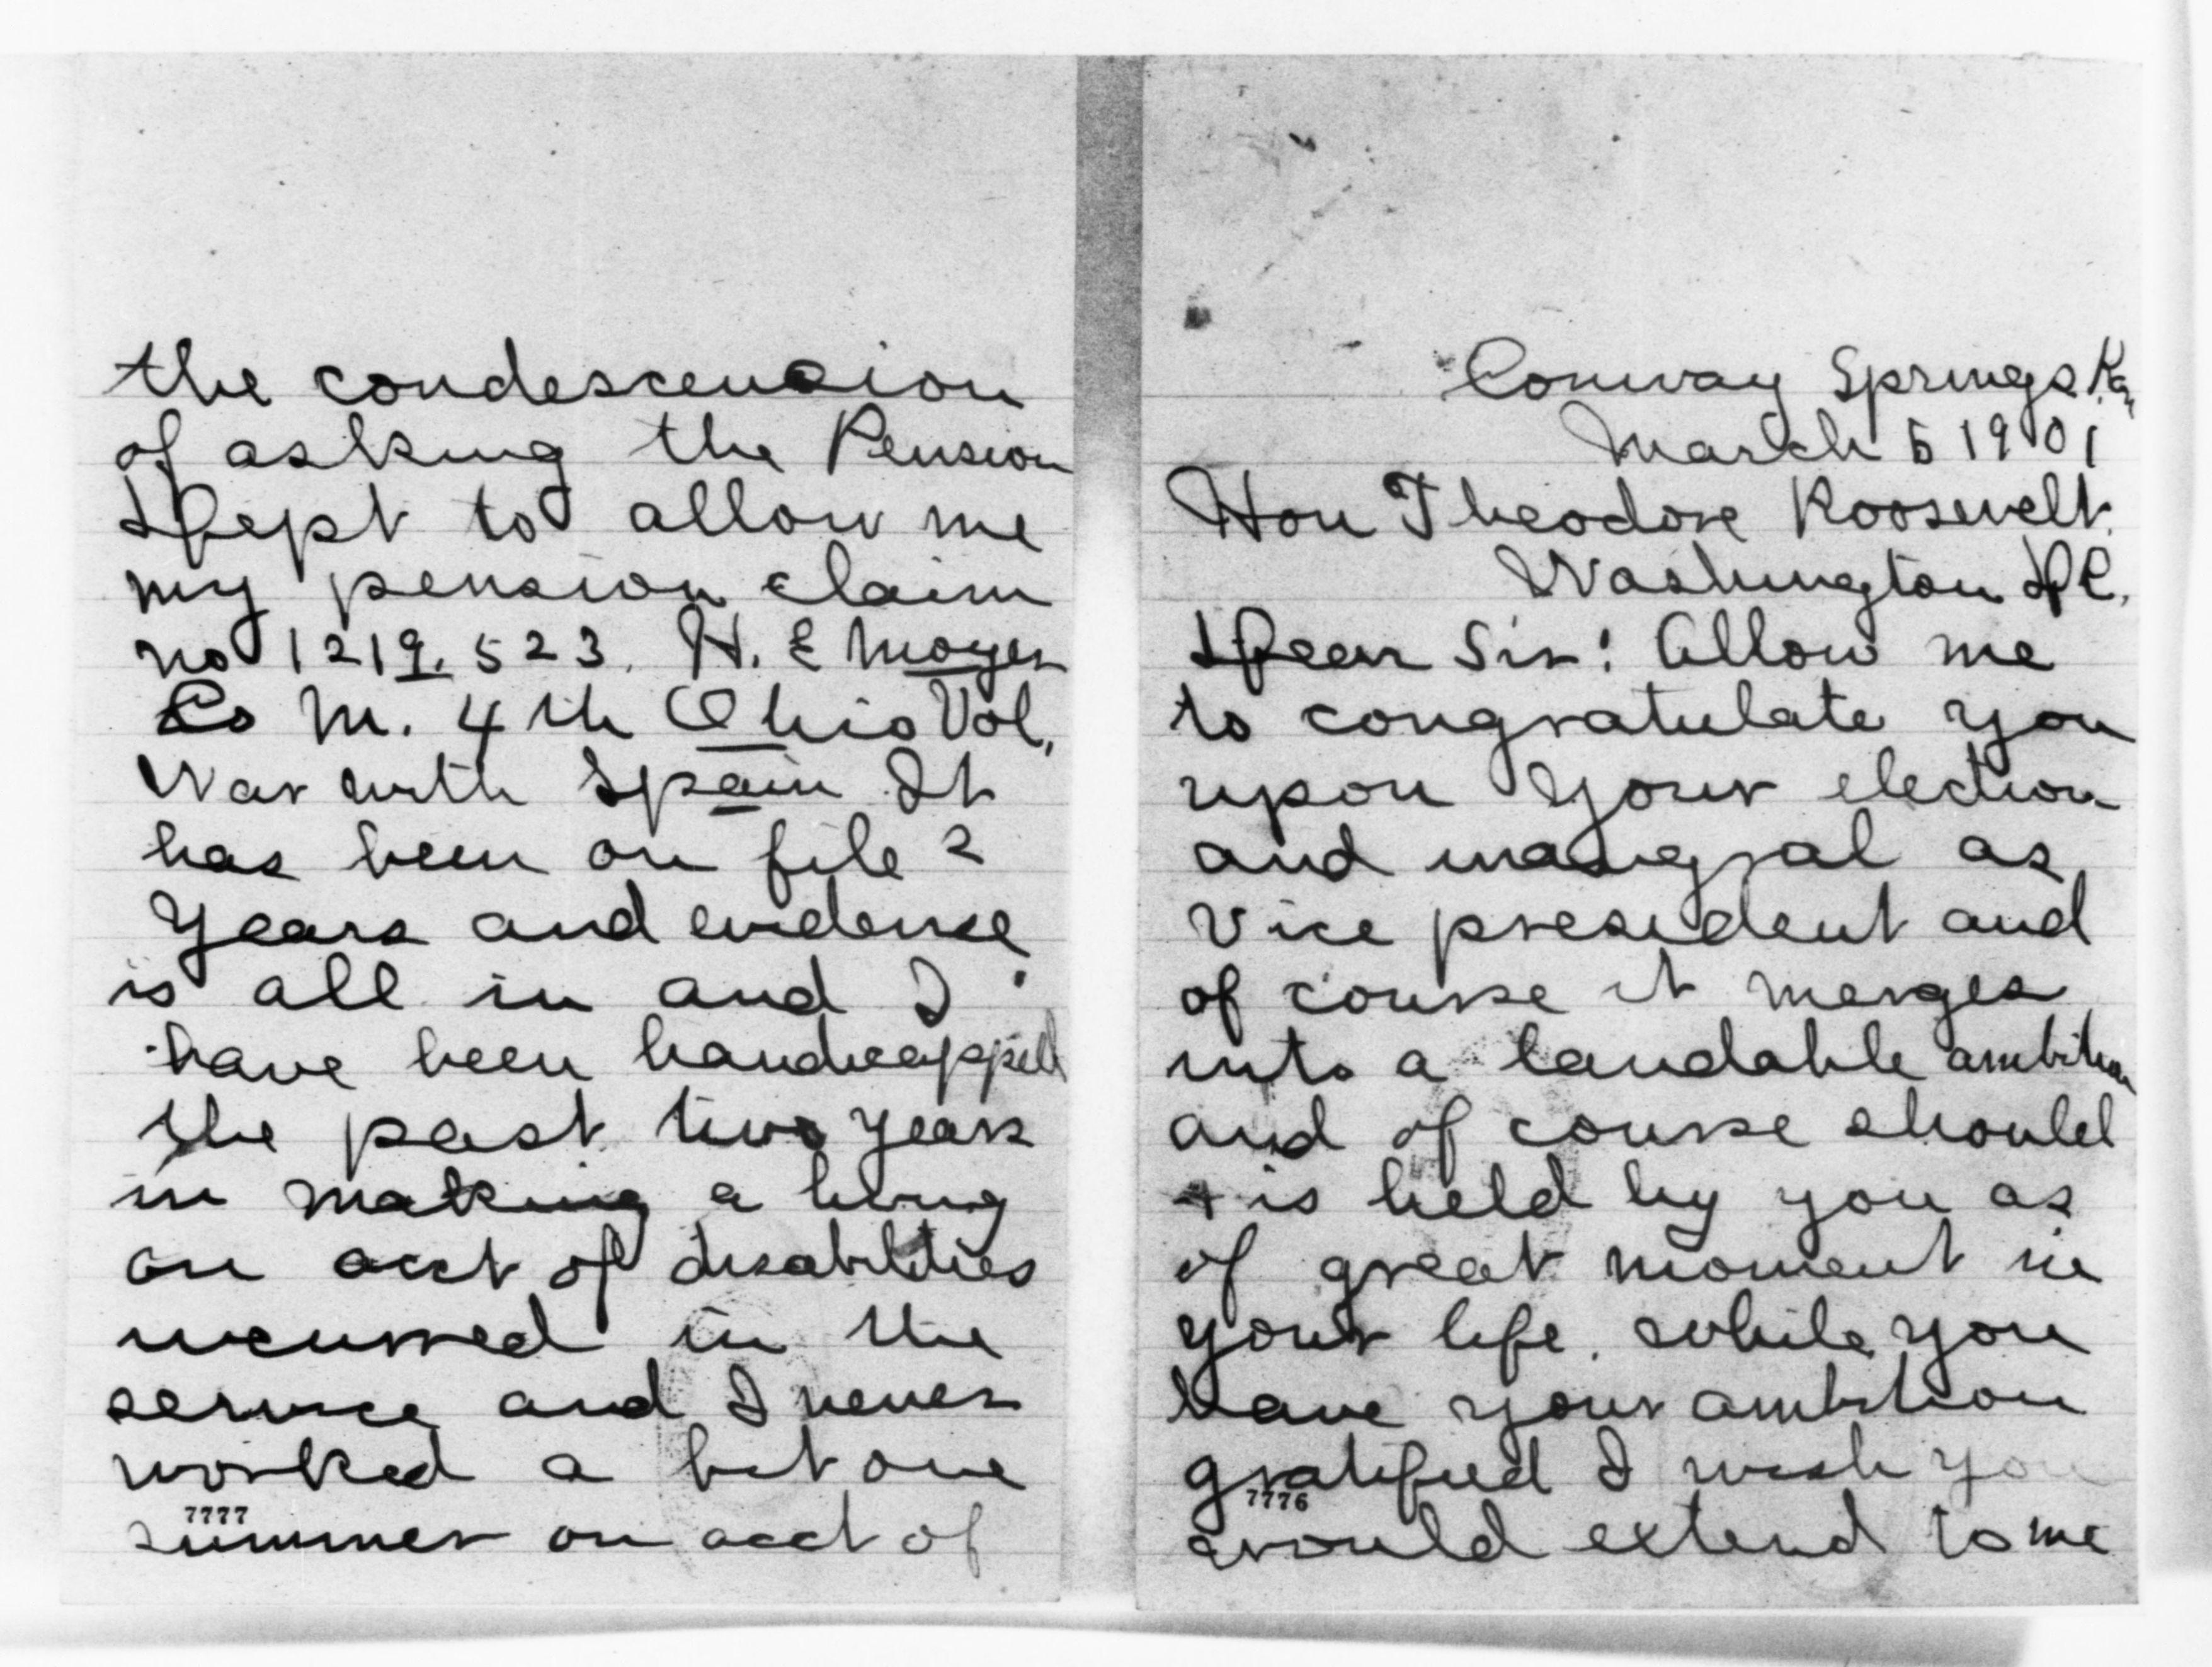 Conway Springs Kan
March 5 1901
Hon Theodore Roosevelt.
Washington D.C.
Dear Sir: Allow me
to congratulate you
upon your election
and inaugral as
Vice president and
of course it merges
into a laudable ambition
and of course should
+ is held by you as
of great moment in
your life. while you
have your ambition
gratified I wish you
would extend to me
7776
the condescension
of asking the Pension
Dept to allow me
my pension claim
no 1219.523. H. E Moyer
Co M. 4th Ohio Vol,
War with Spain It
has been on file 2
Years and evidence
is all in and I
have been handicapped
the past two years
in making a living
on acct of disabilities
incurred in the
service and I never
worked a bit one
7777
summer on acct of